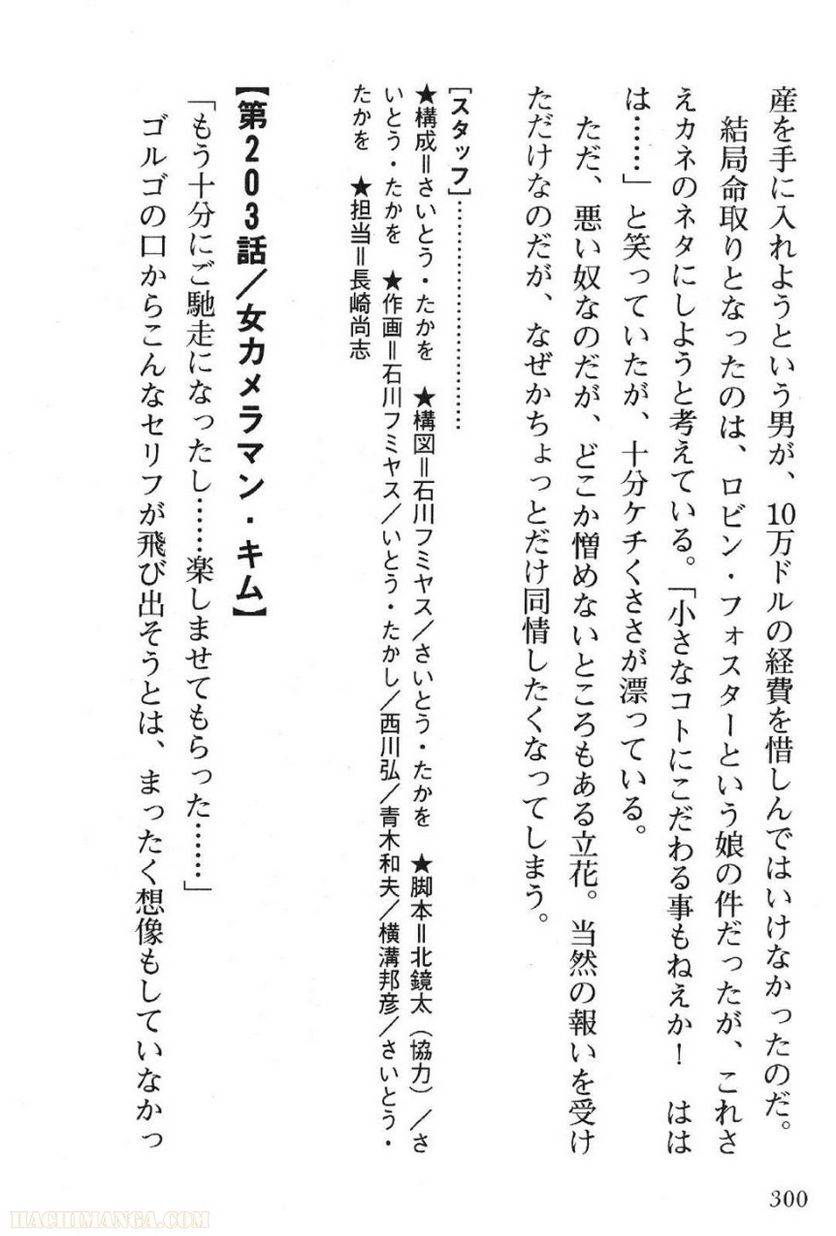 産を手に入れようという男が、10万ドルの経費を惜しんではいけなかったのだ。
結局命取りとなったのは、ロビン・フォスターという娘の件だったが、これさ
えカネのネタにしようと考えている。「小さなコトにこだわる事もねえか！　はは
は……」と笑っていたが、十分ケチくささが漂っている。
ただ、悪い奴なのだが、どこか憎めないところもある立花。当然の報いを受け
ただけなのだが、なぜかちょっとだけ同情したくなってしまう。
［スタッフ］…………………………
★構成＝さいとう・たかを　★構図＝石川フミヤス／さいとう・たかを　★脚本＝北鏡太（協力）／さ
いとう・たかを　★作画＝石川フミヤス／いとう・たかし／西川弘／青木和夫／横溝邦彦／さいとう・
たかを　★担当＝長崎尚志
【第203話／女カメラマン・キム】
「もう十分にご馳走になったし……楽しませてもらった……」
ゴルゴの口からこんなセリフが飛び出そうとは、まったく想像もしていなかっ
300
HACHIMANGA.COM